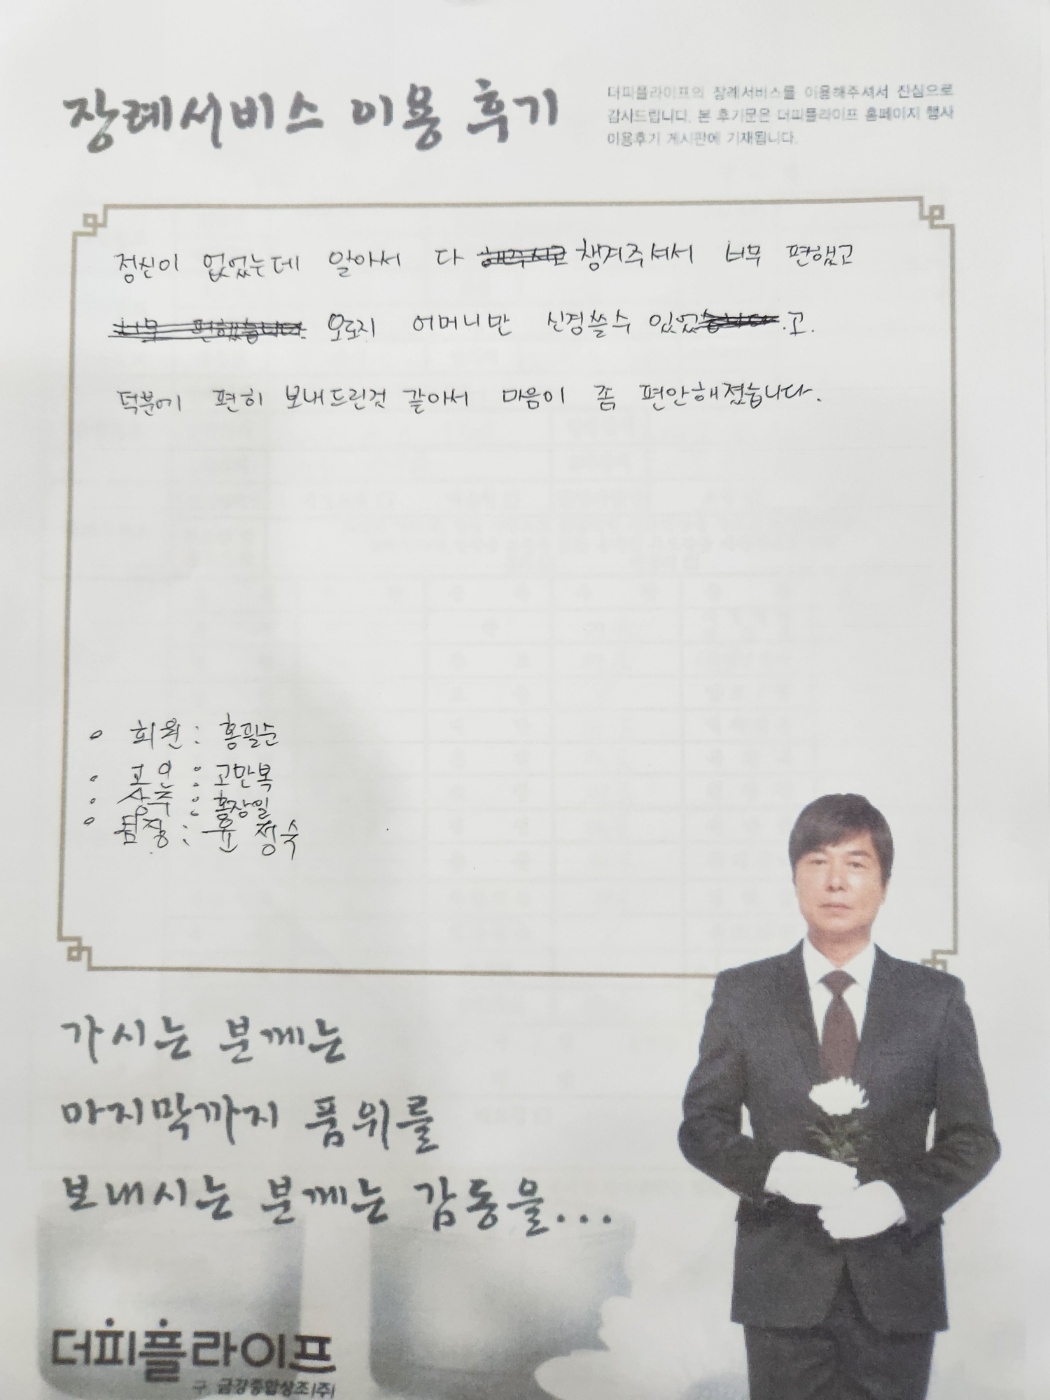 장례서비스 이용 후기
더피플라이프의 장례서비스를 이용해주셔서 진심으로
감사드립니다. 본 후기문은 더피플라이프 홈페이지 행사
이용후기 게시판에 기재됩니다.
정신이 없었는데 알아서 다 챙겨주셔서 너무 편했고
오로지 어머니만 신경쓸수 있었고.
덕분에 편히 보내드린것 같아서 마음이 좀 편안해졌습니다.
회원 : 홍필순
고인 : 고만복
상주 : 홍장일
팀장 : 윤정숙
가시는 분께는
마지막까지 품위를
보내시는 분께는 감동을...
더피플라이프
구. 금강종합상조(주)